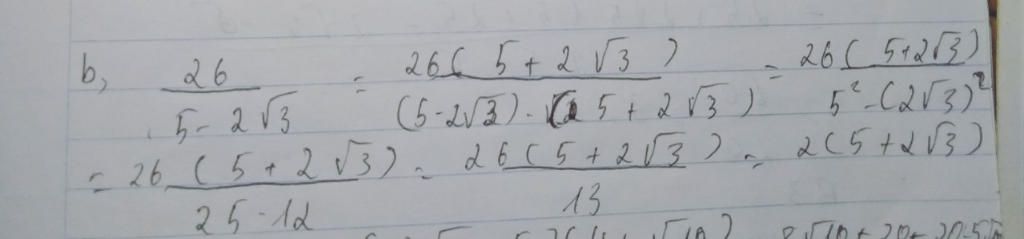 b, 26/(5 - 2√3) = 26(5 + 2√3)/((5-2√3).(5 + 2√3)) = 26(5+2√3)/(5² - (2√3)²)
= 26(5 + 2√3)/(25-12) = 26(5 + 2√3)/13 = 2(5 + 2√3)